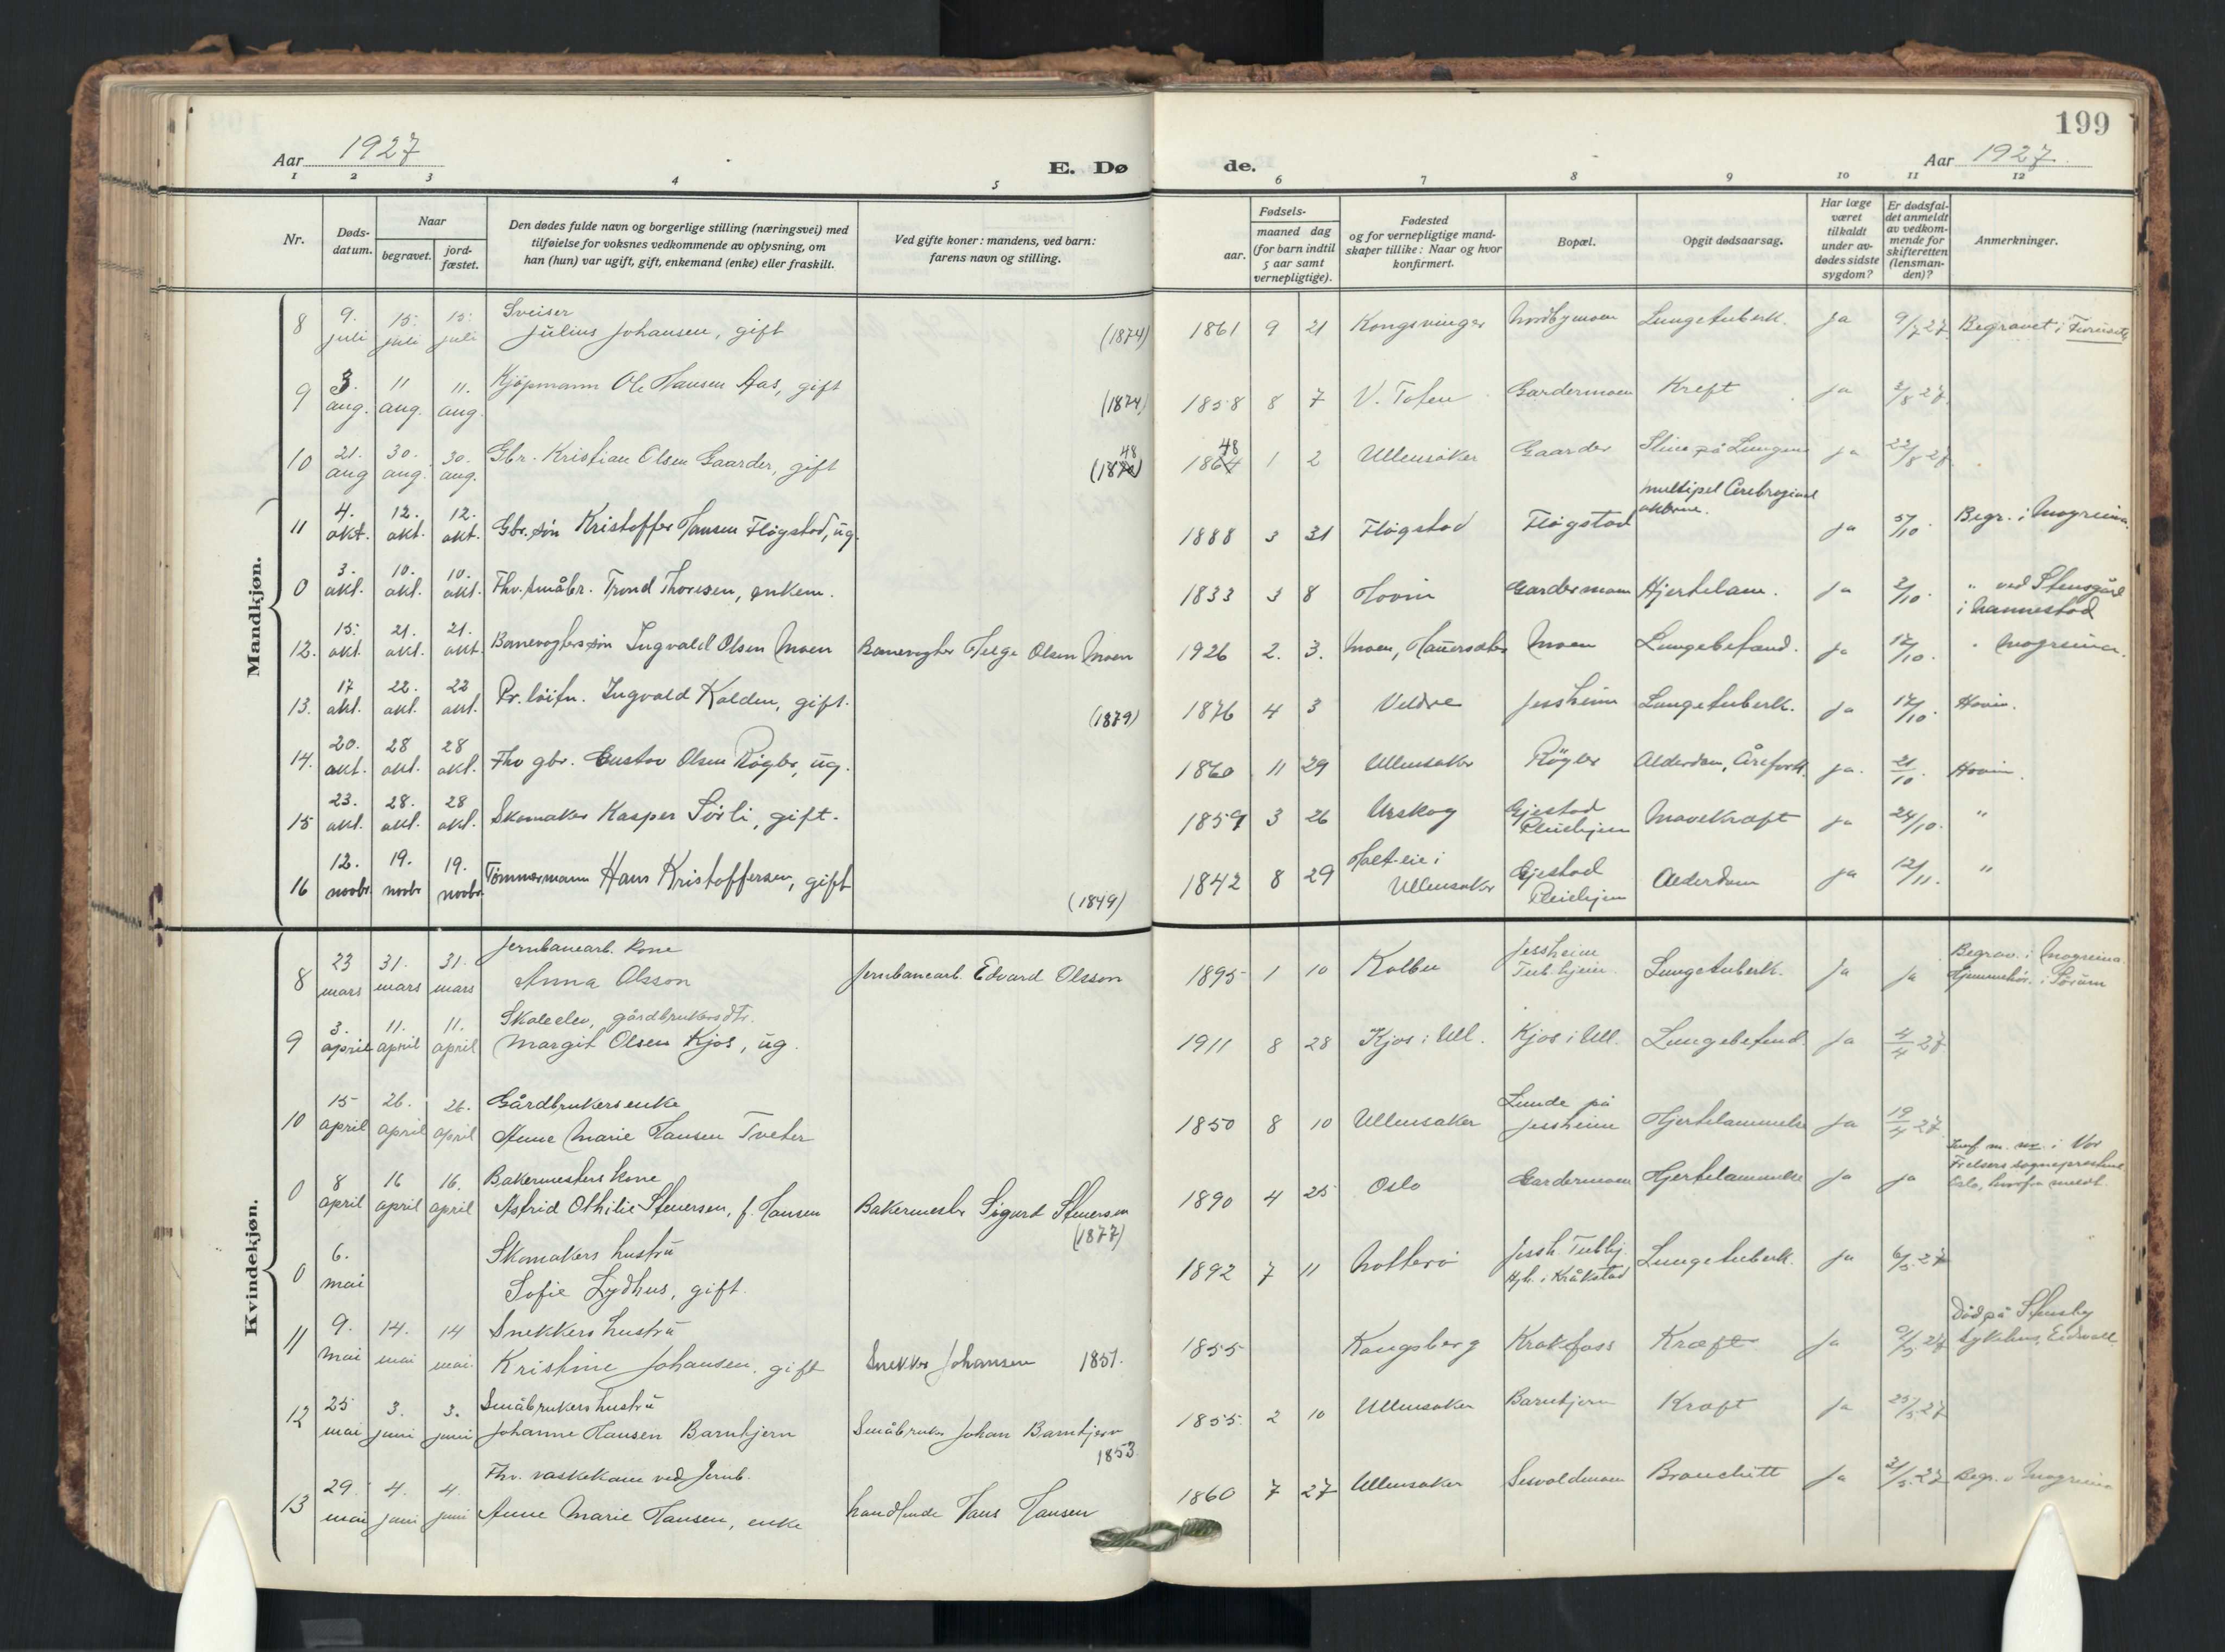 199
Aar 1927
E. Dø
de.
Aar 1927.
1 2 3 4 5 6 7 8 9 10 11 12
Nr.
Døds-
datum.
Naar
begravet.
jord-
fæstet.
Den dødes fulde navn og borgerlige stilling (næringsvei) med
tilføielse for voksnes vedkommende av oplysning, om
han (hun) var ugift, gift, enkemand (enke) eller fraskilt.
Ved gifte koner: mandens, ved barn:
farens navn og stilling.
Fødsels-
aar.
maaned dag
(for barn indtil
5 aar samt
vernepligtige).
Fødested
og for vernepligtige mand-
skaper tillike: Naar og hvor
konfirmert.
Bopæl.
Opgit dødsaarsag.
Har læge
været
tilkaldt
under av-
dødes sidste
sygdom?
Er dødsfal-
det anmeldt
av vedkom-
mende for
skifteretten
(lensman-
den)?
Anmerkninger.
Mandkjøn.
8 9. juli 15. juli 15. juli Sveiser
Julius Johansen, gift (1874) 1861 9 21 Kongsvinger Nordbymoen Lungetuberk. Ja 9/7 27. Begravet i Furuset
9 3. aug. 11 aug. 11. aug. Kjøpmann Ole Hansen Aas, gift (1874) 1858 8 7 V. Toten Gardermoen Kreft ja 3/8 27.
10 21. aug 30. aug. 30. aug. Gbr. Kristian Olsen Gaarder, gift 48 48 1864 1 2 Ullensaker Gaarder Slim på Lungene ja 22/8 27.
11 4. okt. 12. okt. 12. okt. Gbr. søn Kristoffer Hansen Fløgstad, ug. 1888 3 31 Fløgstad Fløgstad multipel ja 5/10. Begr. i Mogreina.
0 3. okt. 10. okt. 10. okt. Fhv. småbr. Trond Thoresen, enkem. 1833 3 8 Hovin Gardermoen Hjertelam. Ja 3/10. " ved Stensgård
i Nannestad
12. 15. okt. 21. okt. 21. okt. Banevogterssøn Ingvald Olsen Moen Banevogter Helge Olsen Moen 1926 2. 3. Moen, Hauerseter Moen Lungebetænd. ja 17/10. " Mogreina.
13. 17 okt. 22. okt. 22 okt. Pr. løitn. Ingvald Kolden, gift. (1879) 1876 4 3 Veldre Jessheim Lungetuberk. Ja 17/10. Hovin.
14. 20. okt. 28 okt. 28 okt. Fhv gbr. Gustav Olsen Røgler, ug. 1860 11 29 Ullensaker Røgler Alderdom, Årefork. ja. 21/10. Hovin.
15 23. okt. 28. okt. 28 okt. Skomaker Kasper Sørli, gift. 1859 3 26 Urskog Gjestad
Pleiehjem Mavekræft ja 24/10. "
16 12. novbr. 19. novbr 19. novbr. Tømmermann Hans Kristoffersen, gift (1849) 1842 8 29 Holt-eie i
Ullensaker Gjestad
Pleiehjem Alderdom ja 12/11. "
Kvindekjøn.
8 23 mars 31. mars 31. mars Jernbanearb. kone
Anna Olsson Jernbanearb. Edvard Olsson 1895 1 10 Kolbu Jessheim
Tub.hjem. Lungetuberk. Ja ja Begrav. i Mogreina.
Hjemmehør. i Sørum
9 3. april 11. april 11. april Skoleelev, gårdbrukersdtr.
Margit Olsen Kjos, ug. 1911 8 28 Kjos i Ull. Kjos i Ull. Lungebetend. Ja 4/4 27
10 15 april 26. april 26. april Gårdbrukersenke
Anne Marie Hansen Tveter 1850 8 10 Ullensaker Lunde på
Jessheim Hjertelammelse Ja 19/4 27.
0 8 april 16 april 16. april Bakermesters kone
Astrid Othilie Stenersen, f. Hansen Bakermester Sigurd Stenersen
(1877) 1890 4 25 Oslo Gardermoen Hjertelammelse Ja ja Innf. m. nr. i Vor
Frelsers sogneprestemb.
Oslo, hvorfra meldt.
0 6. mai Skomakers hustru
Sofie Lydhus, gift. 1892 7 11 Nøtterø Jessh. Tubhj.
Hjh. i Kråkstad Lungetuberk. Ja 6/5 27
11 9. mai 14. mai 14 mai. Snekkers hustru
Kristine Johansen, gift Snekker Johansen 1851. 1855 Kongsberg Krokfoss Kræft Ja 9/5 27 Død på Stensby
sykehus, Eidsvoll.
12 25 mai 3. juni 3. juni Småbrukers hustru
Johanne Hansen Barnhjern Småbruker Johan Barnhjern
1853. 1855. 2 10 Ullensaker Barnhjern Kræft Ja 25/5 27
13 29. mai 4. juni 4. juni Fhv. vaskekone ved Jernb.
Anne Marie Hansen, enke handlende Hans Hansen 1860 7 27 Ullensaker Sesvoldmoen Bronchitt Ja 31/5 27 Begr. v Mogreina